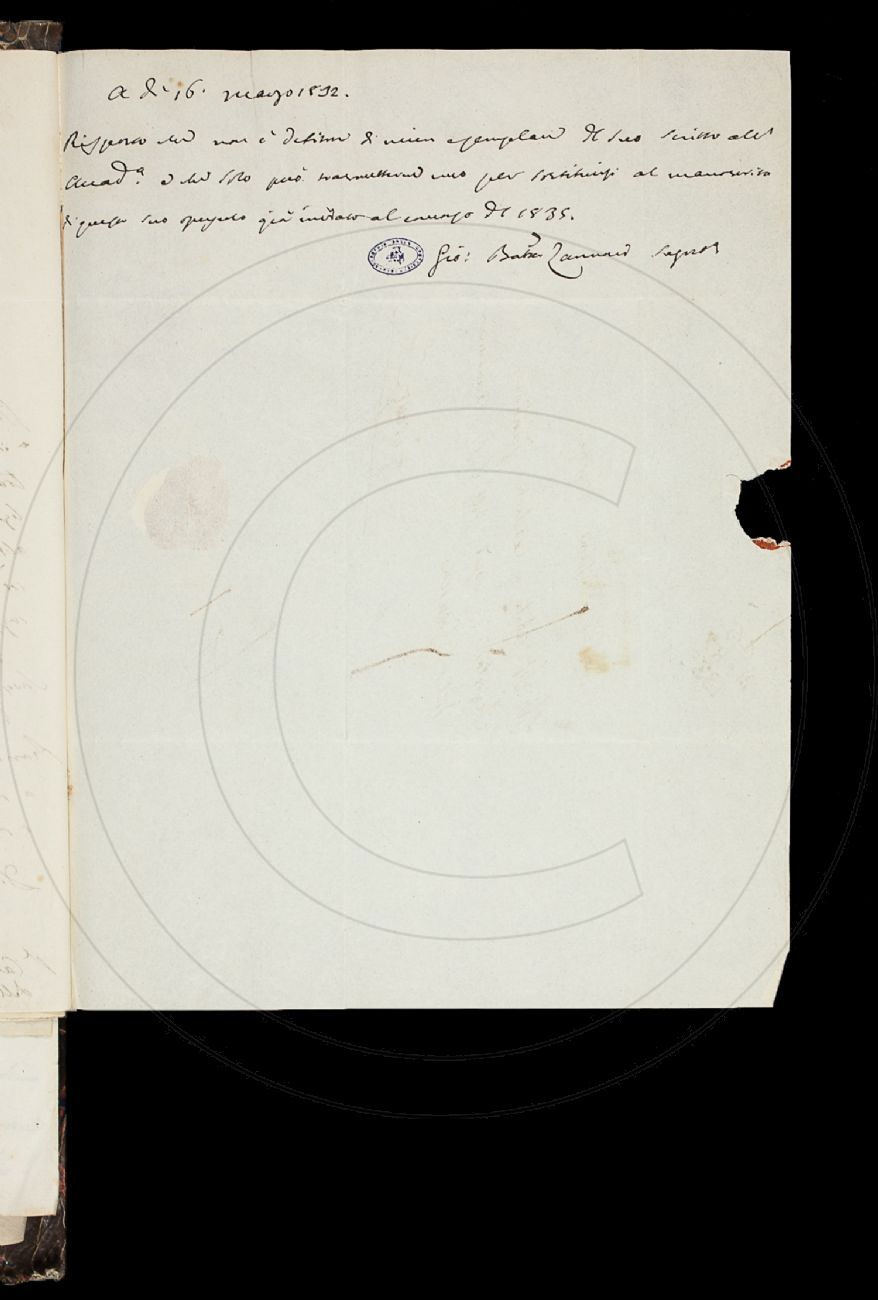 A dì 16. marzo 1832.
Risposto che non è debitore di niun esemplare del suo scritto all'
Accad.ª e che solo può trasmetterne uno per sostituirsi al manoscritto
di questo suo opuscolo già inviato al concorso del 1835.
Gio: Batta Zannoni Segret.